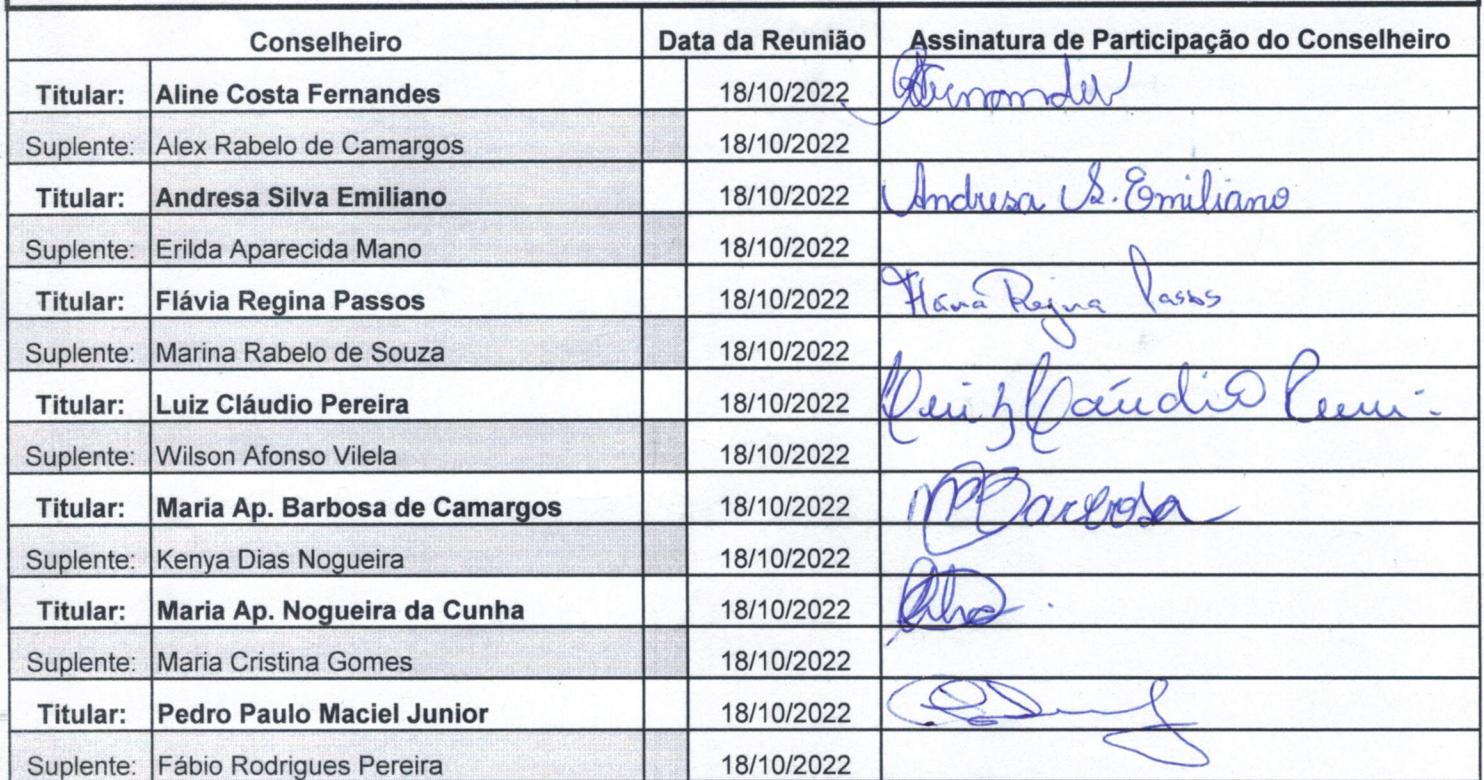 Conselheiro Data da Reunião Assinatura de Participação do Conselheiro
Titular: Aline Costa Fernandes 18/10/2022
Suplente: Alex Rabelo de Camargos 18/10/2022
Titular: Andresa Silva Emiliano 18/10/2022 Andresa S. Emiliano
Suplente: Erilda Aparecida Mano 18/10/2022
Titular: Flávia Regina Passos 18/10/2022 Flávia Regina Passos
Suplente: Marina Rabelo de Souza 18/10/2022
Titular: Luiz Cláudio Pereira 18/10/2022 Luiz Cláudio
Suplente: Wilson Afonso Vilela 18/10/2022
Titular: Maria Ap. Barbosa de Camargos 18/10/2022 MBarbosa
Suplente: Kenya Dias Nogueira 18/10/2022
Titular: Maria Ap. Nogueira da Cunha 18/10/2022
Suplente: Maria Cristina Gomes 18/10/2022
Titular: Pedro Paulo Maciel Junior 18/10/2022
Suplente: Fábio Rodrigues Pereira 18/10/2022